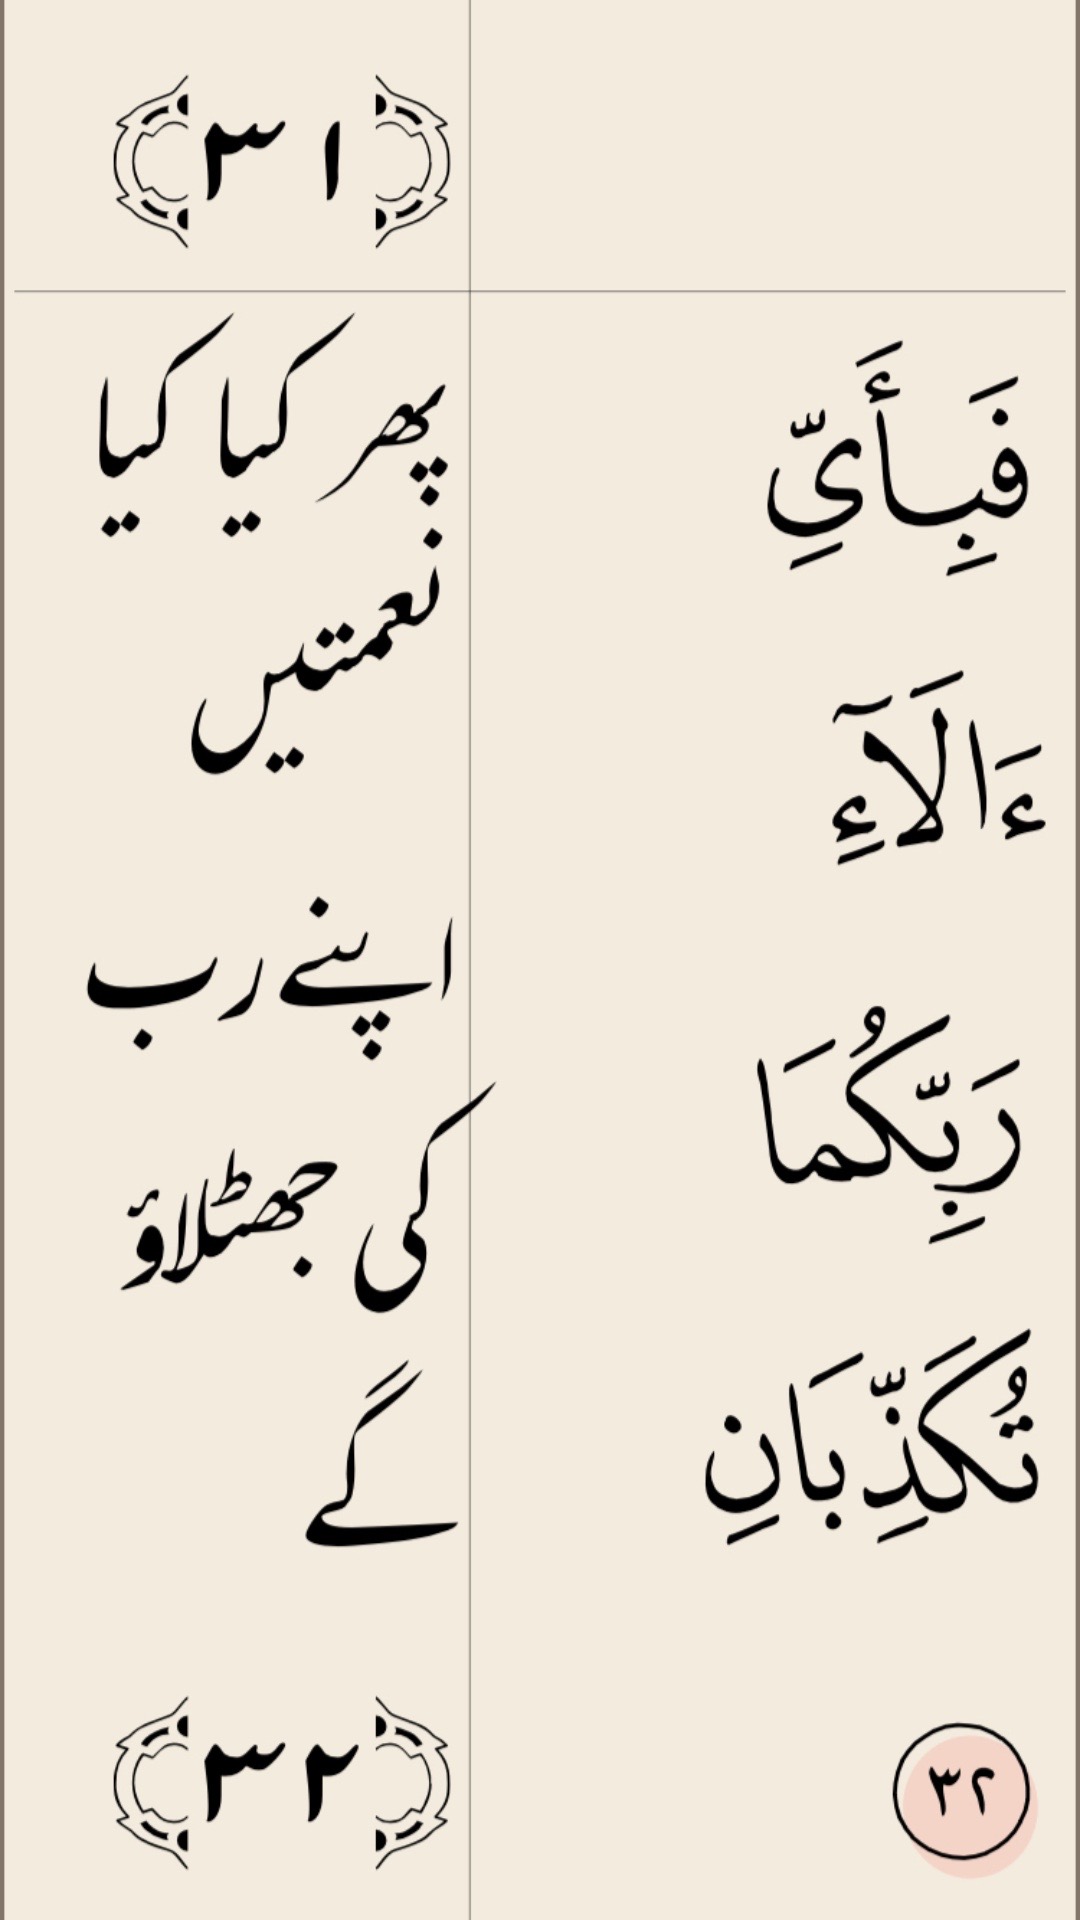 ﴿۳۱﴾
فَبِأَىِّ
ءَالَآءِ
رَبِّكُمَا
تُكَذِّبَانِ
٣٢
پھر کیا کیا
نعمتیں
اپنے رب
کی جھٹلاؤ
گے
﴿۳۲﴾